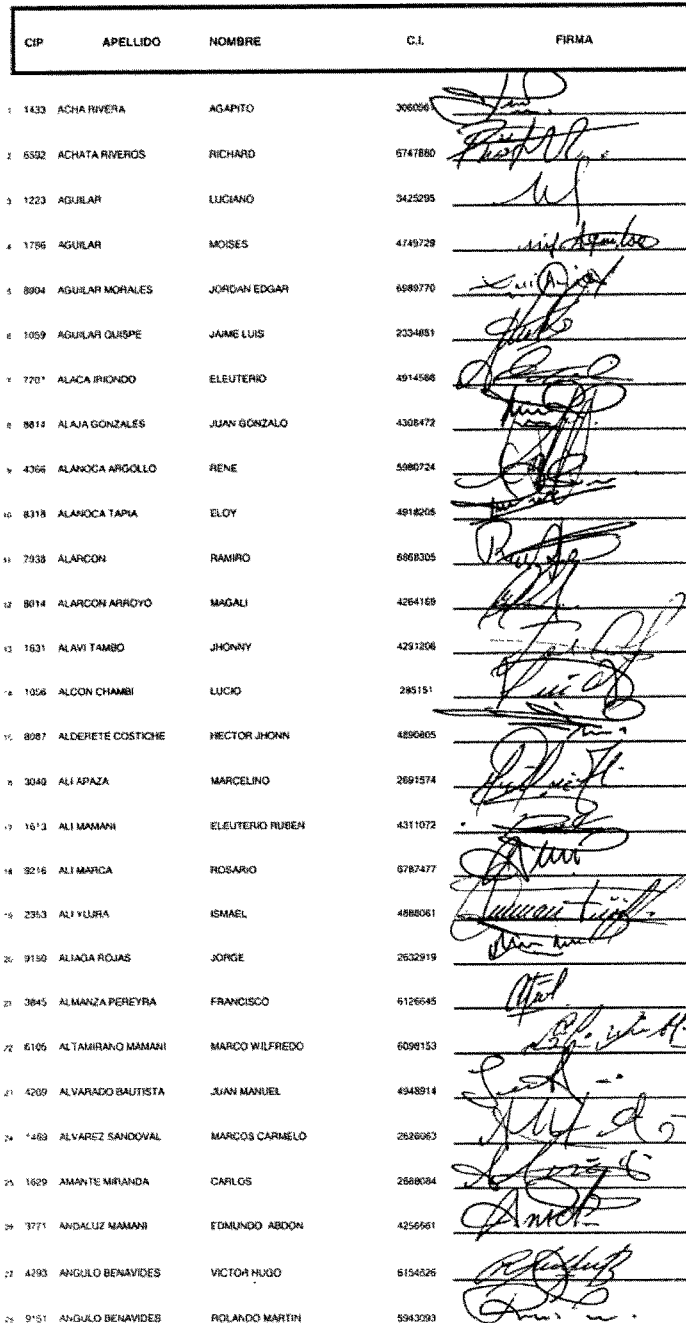 CIP APELLIDO NOMBRE C.I. FIRMA
1 1433 ACHA RIVERA AGAPITO 3060961
2 6592 ACHATA RIVEROS RICHARD 6747880
3 1223 AGUILAR LUCIANO 3425295
4 1786 AGUILAR MOISES 4749729
5 8904 AGUILAR MORALES JORDAN EDGAR 6989770
6 1059 AGUILAR QUISPE JAIME LUIS 2334851
7 ALACA IRIONDO ELEUTERIO 4914566
8 8814 ALAJA GONZALES JUAN GONZALO 4308472
9 4366 ALANOCA ARGOLLO RENE 5980724
10 8318 ALANOCA TAPIA ELOY 4918205
11 7938 ALARCON RAMIRO 6868305
12 8014 ALARCON ARROYO MAGALI 4264169
13 1631 ALAVI TAMBO JHONNY 4291206
14 1056 ALCON CHAMBI LUCIO 285151
15 8087 ALDERETE COSTICHE HECTOR JHONN 4890805
16 3040 ALI APAZA MARCELINO 2691574
17 1613 ALI MAMANI ELEUTERIO RUBEN 4311072
18 9216 ALI MARCA ROSARIO 6787477
19 2353 ALI YUJRA ISMAEL 4888061
20 9150 ALIAGA ROJAS JORGE 2632919
21 3845 ALMANZA PEREYRA FRANCISCO 6126645
22 6105 ALTAMIRANO MAMANI MARCO WILFREDO 6098153
23 4209 ALVARADO BAUTISTA JUAN MANUEL 4948914
24 1469 ALVAREZ SANDOVAL MARCOS CARMELO 2626063
25 1629 AMANTE MIRANDA CARLOS 2688084
26 3771 ANDALUZ MAMANI EDMUNDO ABDON 4256661
27 4293 ANGULO BENAVIDES VICTOR HUGO 6154626
28 9151 ANGULO BENAVIDES ROLANDO MARTIN 5943093